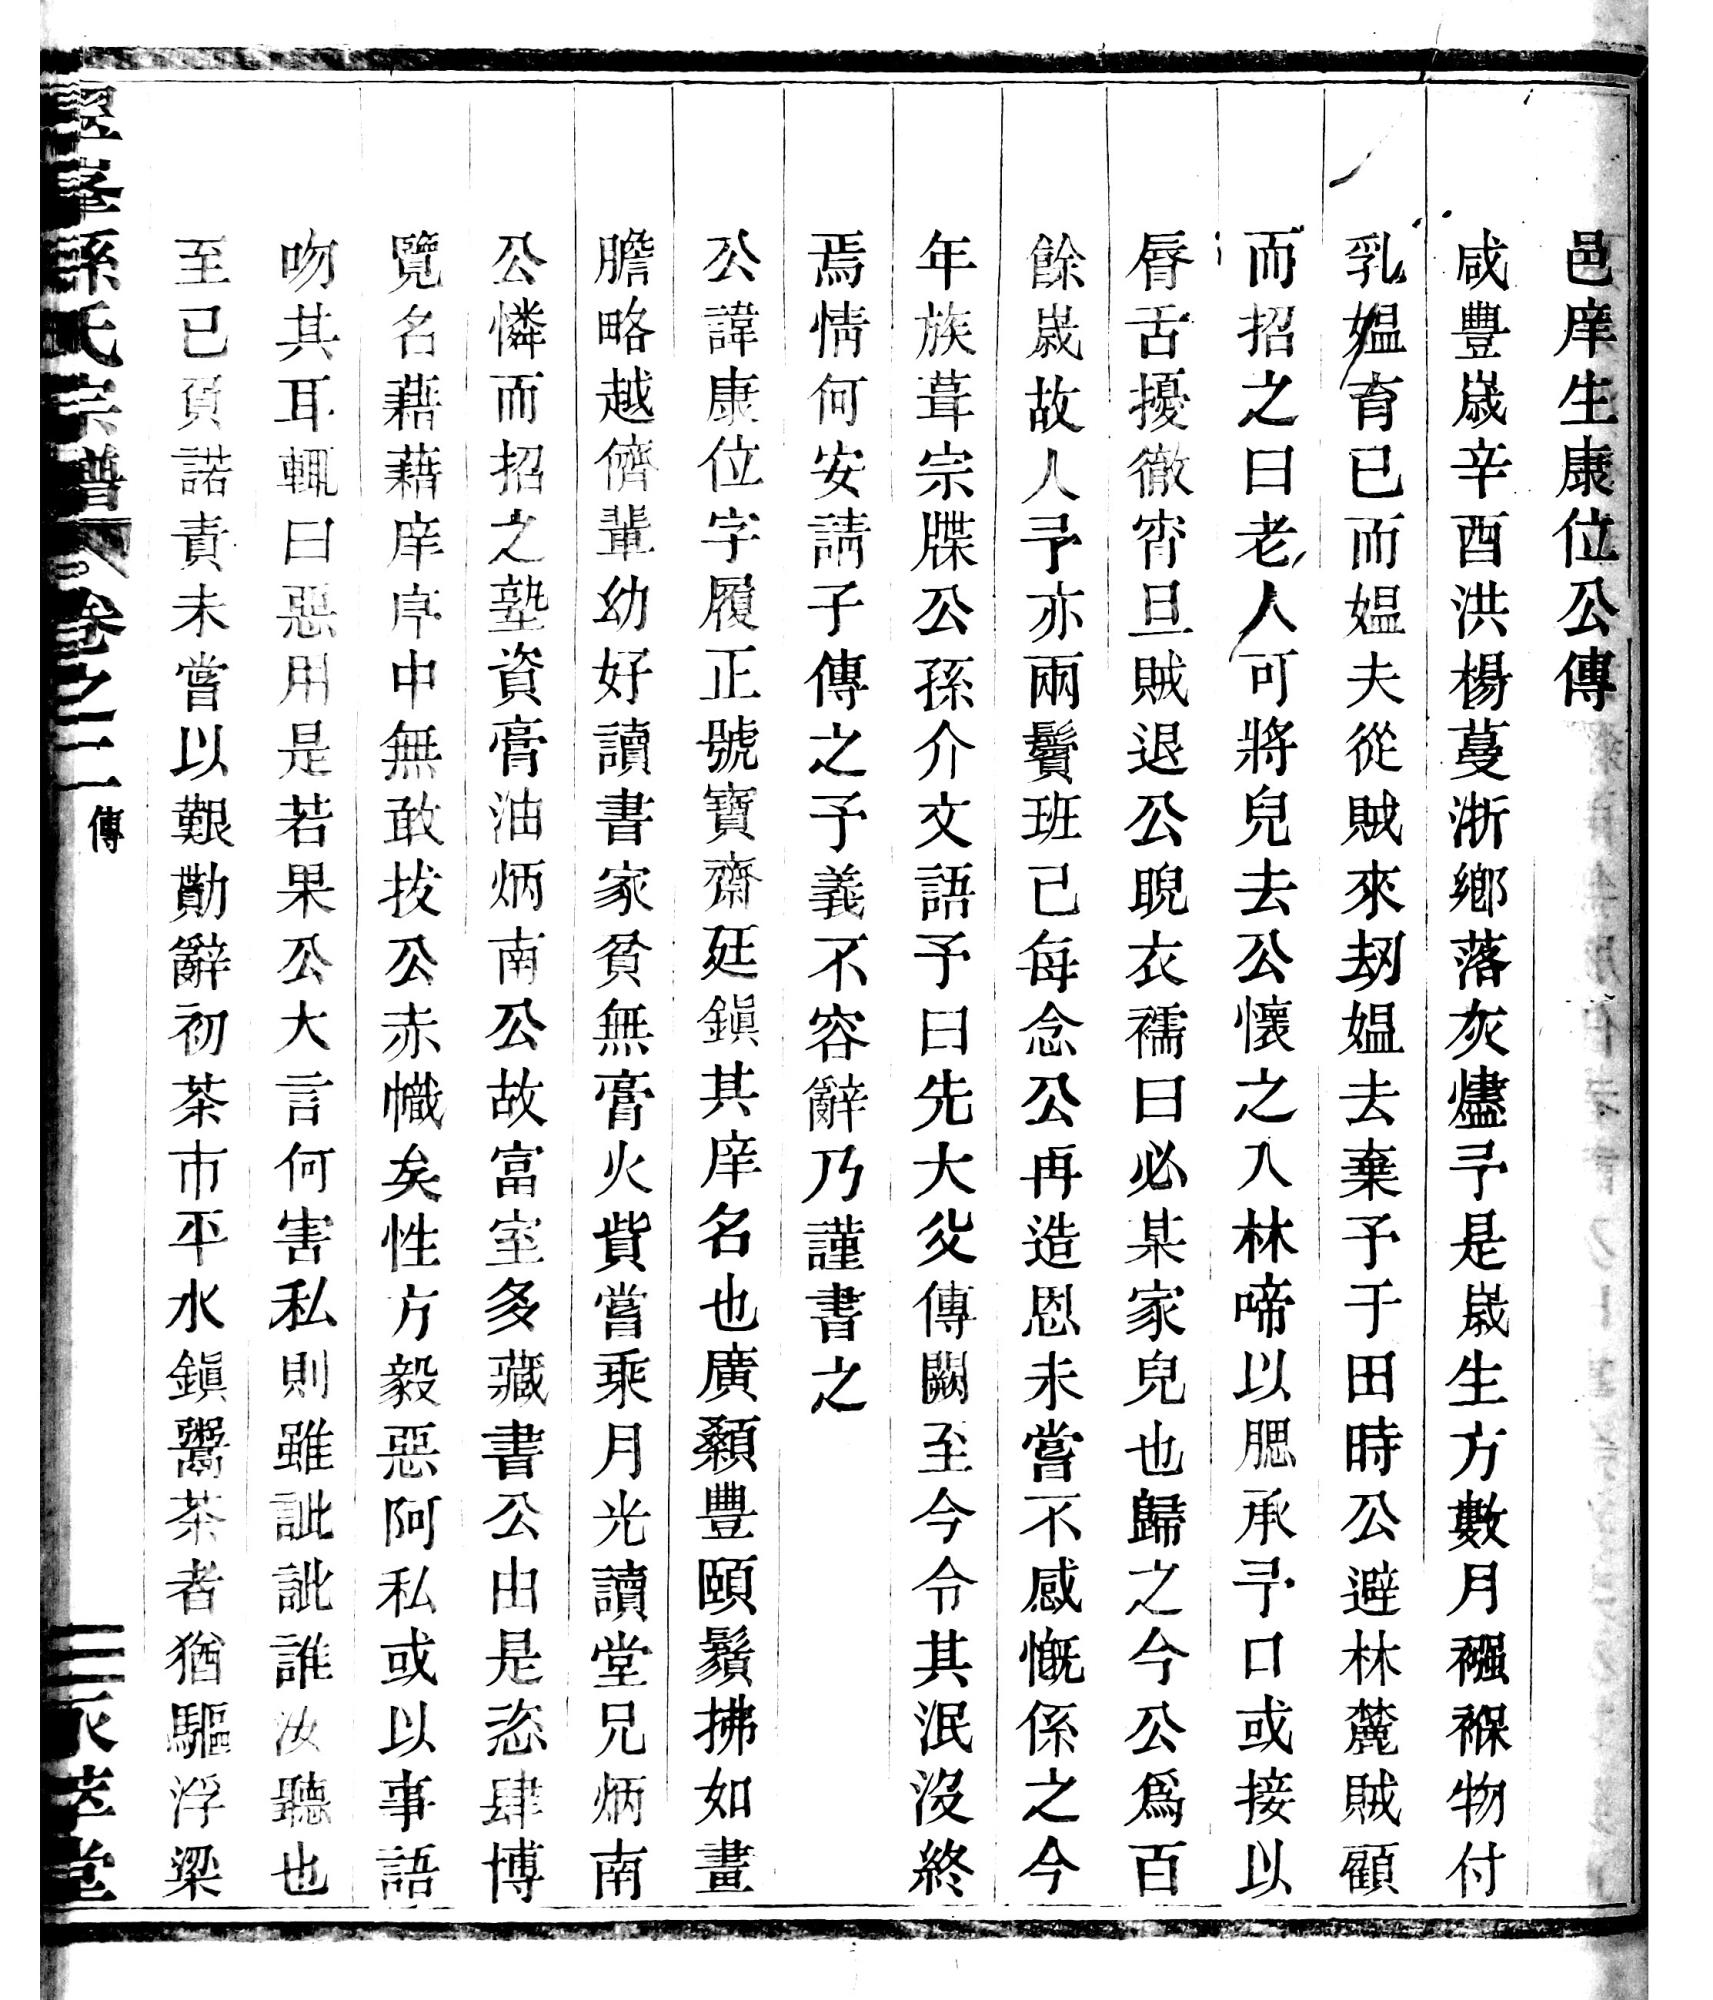 邑庠生康位公傳
咸豐歲辛酉洪楊蔓浙鄉落灰燼予是歲生方數月襁褓物付
乳媼育已而媼夫從賊來刼媼去棄予于田時公避林麓賊顧
而招之曰老人可將兒去公懷之入林啼以腮承予口或接以
脣舌擾徹宵旦賊退公睨衣襦曰必某家兒也歸之今公爲百
餘歲故人予亦兩鬢班已每念公再造恩未嘗不感慨係之今
年族葺宗牒公孫介文語予曰先大父傳闕至今令其泯沒終
焉情何安請子傳之予義不容辭乃謹書之
公諱康位字履正號寶齋廷鎭其庠名也廣顙豐頤鬚拂如畫
膽略越儕輩幼好讀書家貧無膏火貲嘗乘月光讀堂兄炳南
公憐而招之塾資膏油炳南公故富室多藏書公由是恣肆博
覽名藉藉庠序中無敢拔公赤幟矣性方毅惡阿私或以事語
吻其耳輒曰惡用是若果公大言何害私則雖訿訿誰汝聽也
至已負諾責未嘗以艱勚辭初茶市平水鎭鬻茶者猶驅浮梁
峯孫氏宗譜 卷之二 傳 三 永萃堂